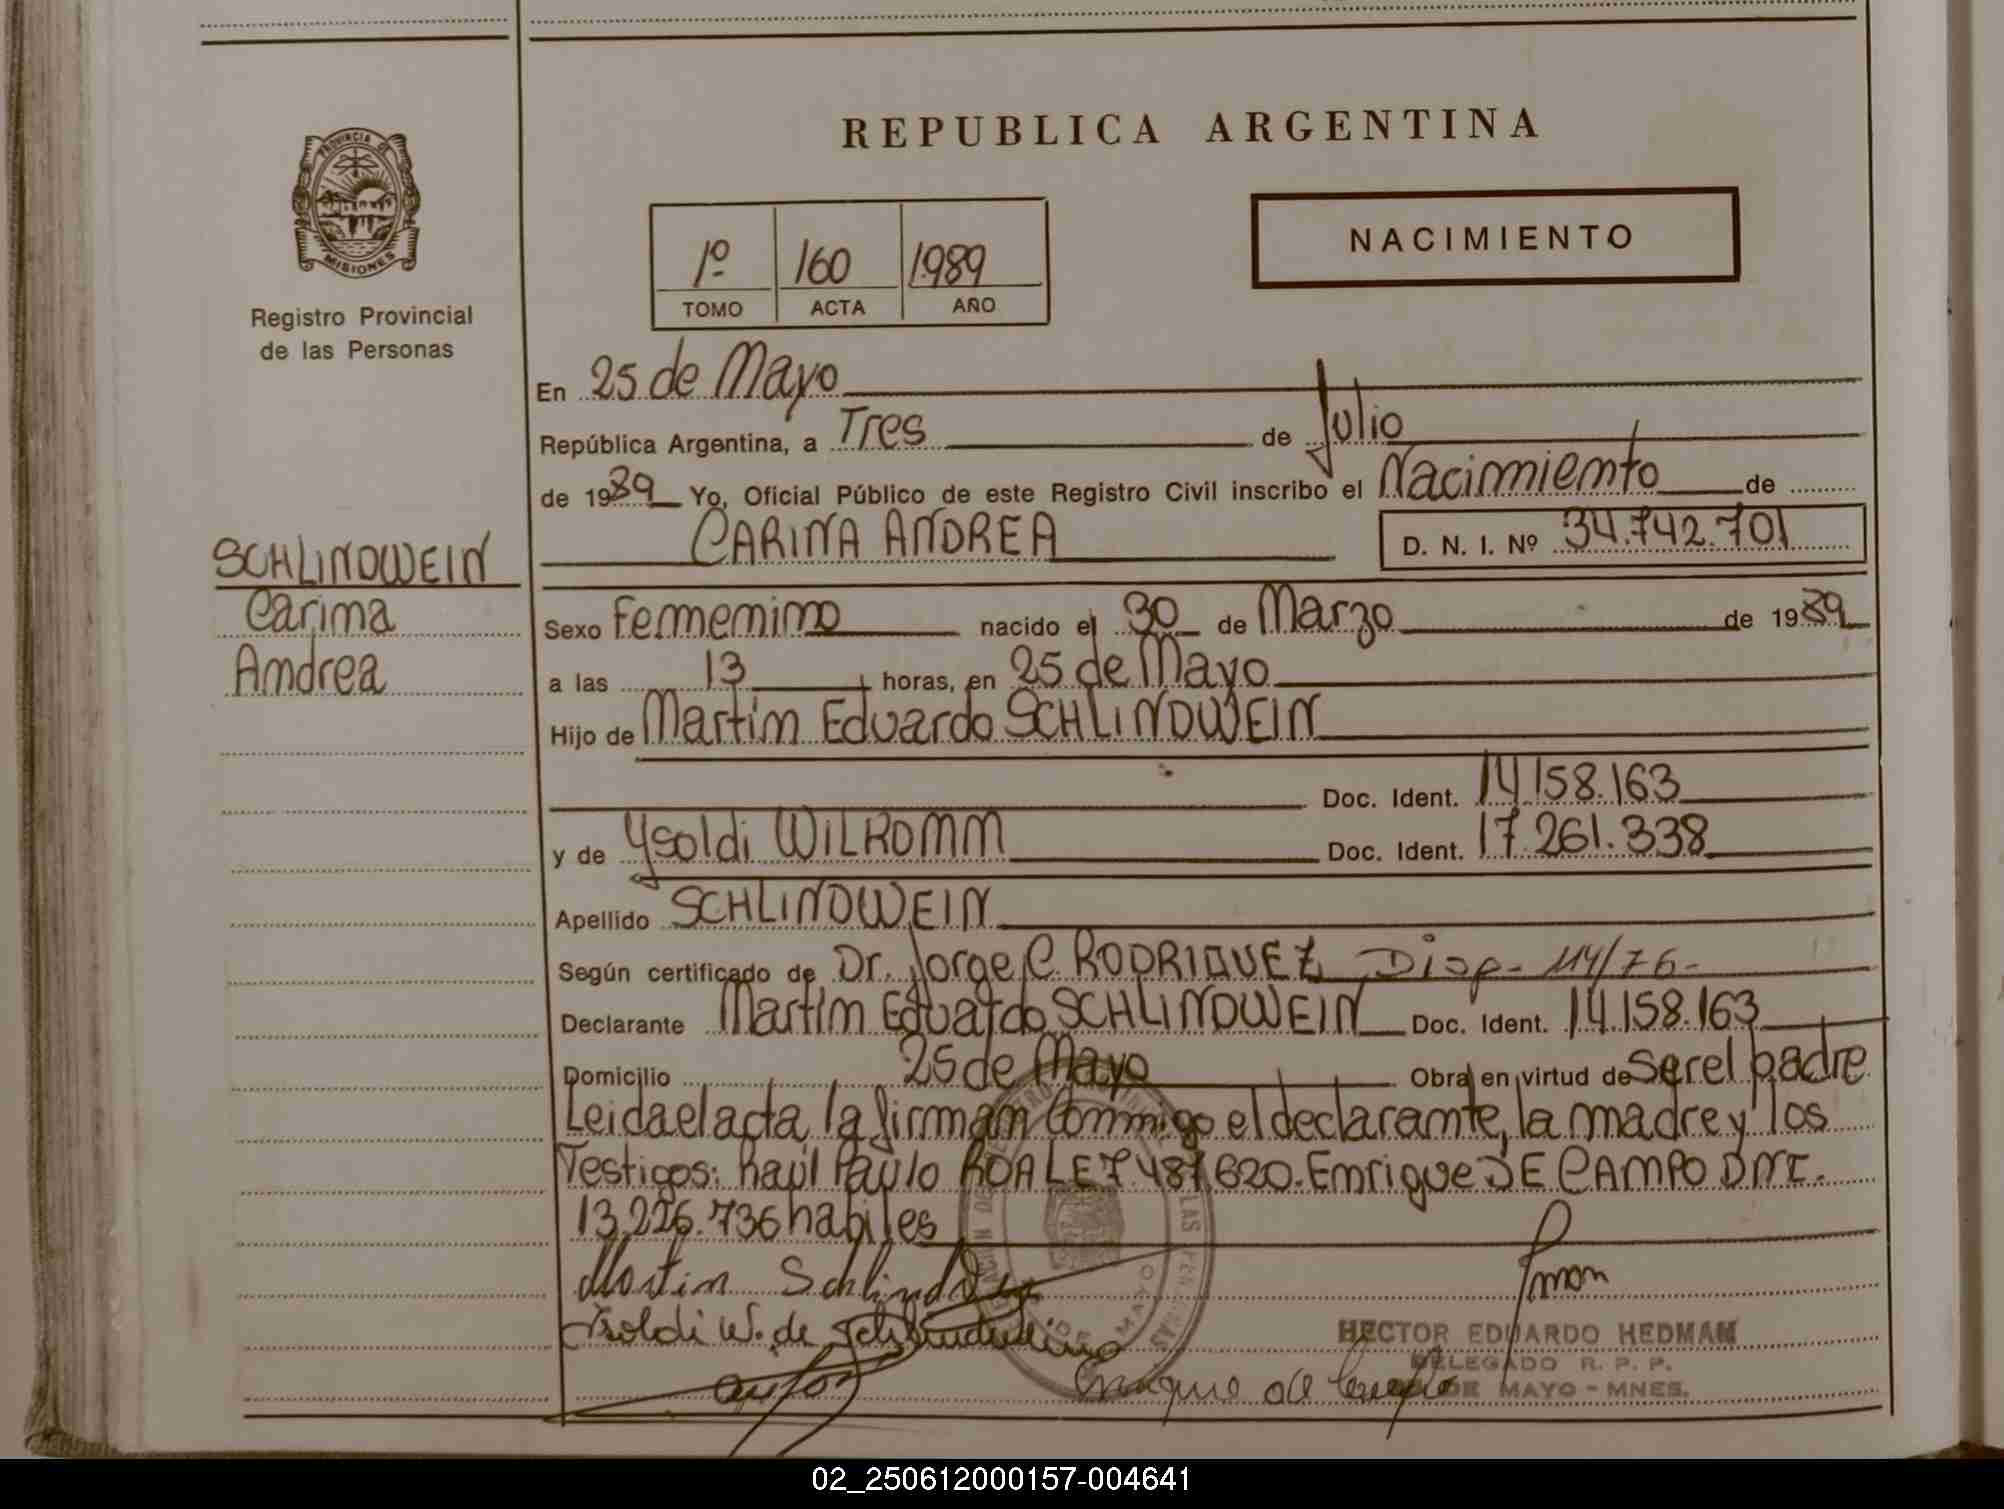 REPUBLICA ARGENTINA
PROVINCIA DE
MISIONES
Registro Provincial
de las Personas
1º 160 1989
TOMO ACTA AÑO
NACIMIENTO
En 25 de Mayo
República Argentina, a Tres de Julio
de 1989 Yo, Oficial Público de este Registro Civil inscribo el Nacimiento de
CARINA ANDREA D. N. I. Nº 34.742.701
SCHLINDWEIN
Carina
Andrea
Sexo Femenino nacido el 30 de Marzo de 1989
a las 13 horas, en 25 de Mayo
Hijo de Martin Eduardo SCHLINDWEIN
Doc. Ident. 14.158.163
y de Ysoldi WILKOMM Doc. Ident. 17.261.338
Apellido SCHLINDWEIN
Según certificado de Dr. Jorge C. RODRIGUEZ Disp- 114/76-
Declarante Martin Eduardo SCHLINDWEIN Doc. Ident. 14.158.163
Domicilio 25 de Mayo Obra en virtud de ser el padre
Leida el acta, la firman conmigo el declarante, la madre y los
Testigos: Raúl Paulo ROA LE 7.487.620. Enrique DE CAMPO DNI.
13.226.736 habiles
Martin
Isoldi W. de
HECTOR EDUARDO HEDMAN
DELEGADO R. P. P.
DE MAYO - MNES.
Enrique de
02_250612000157-004641